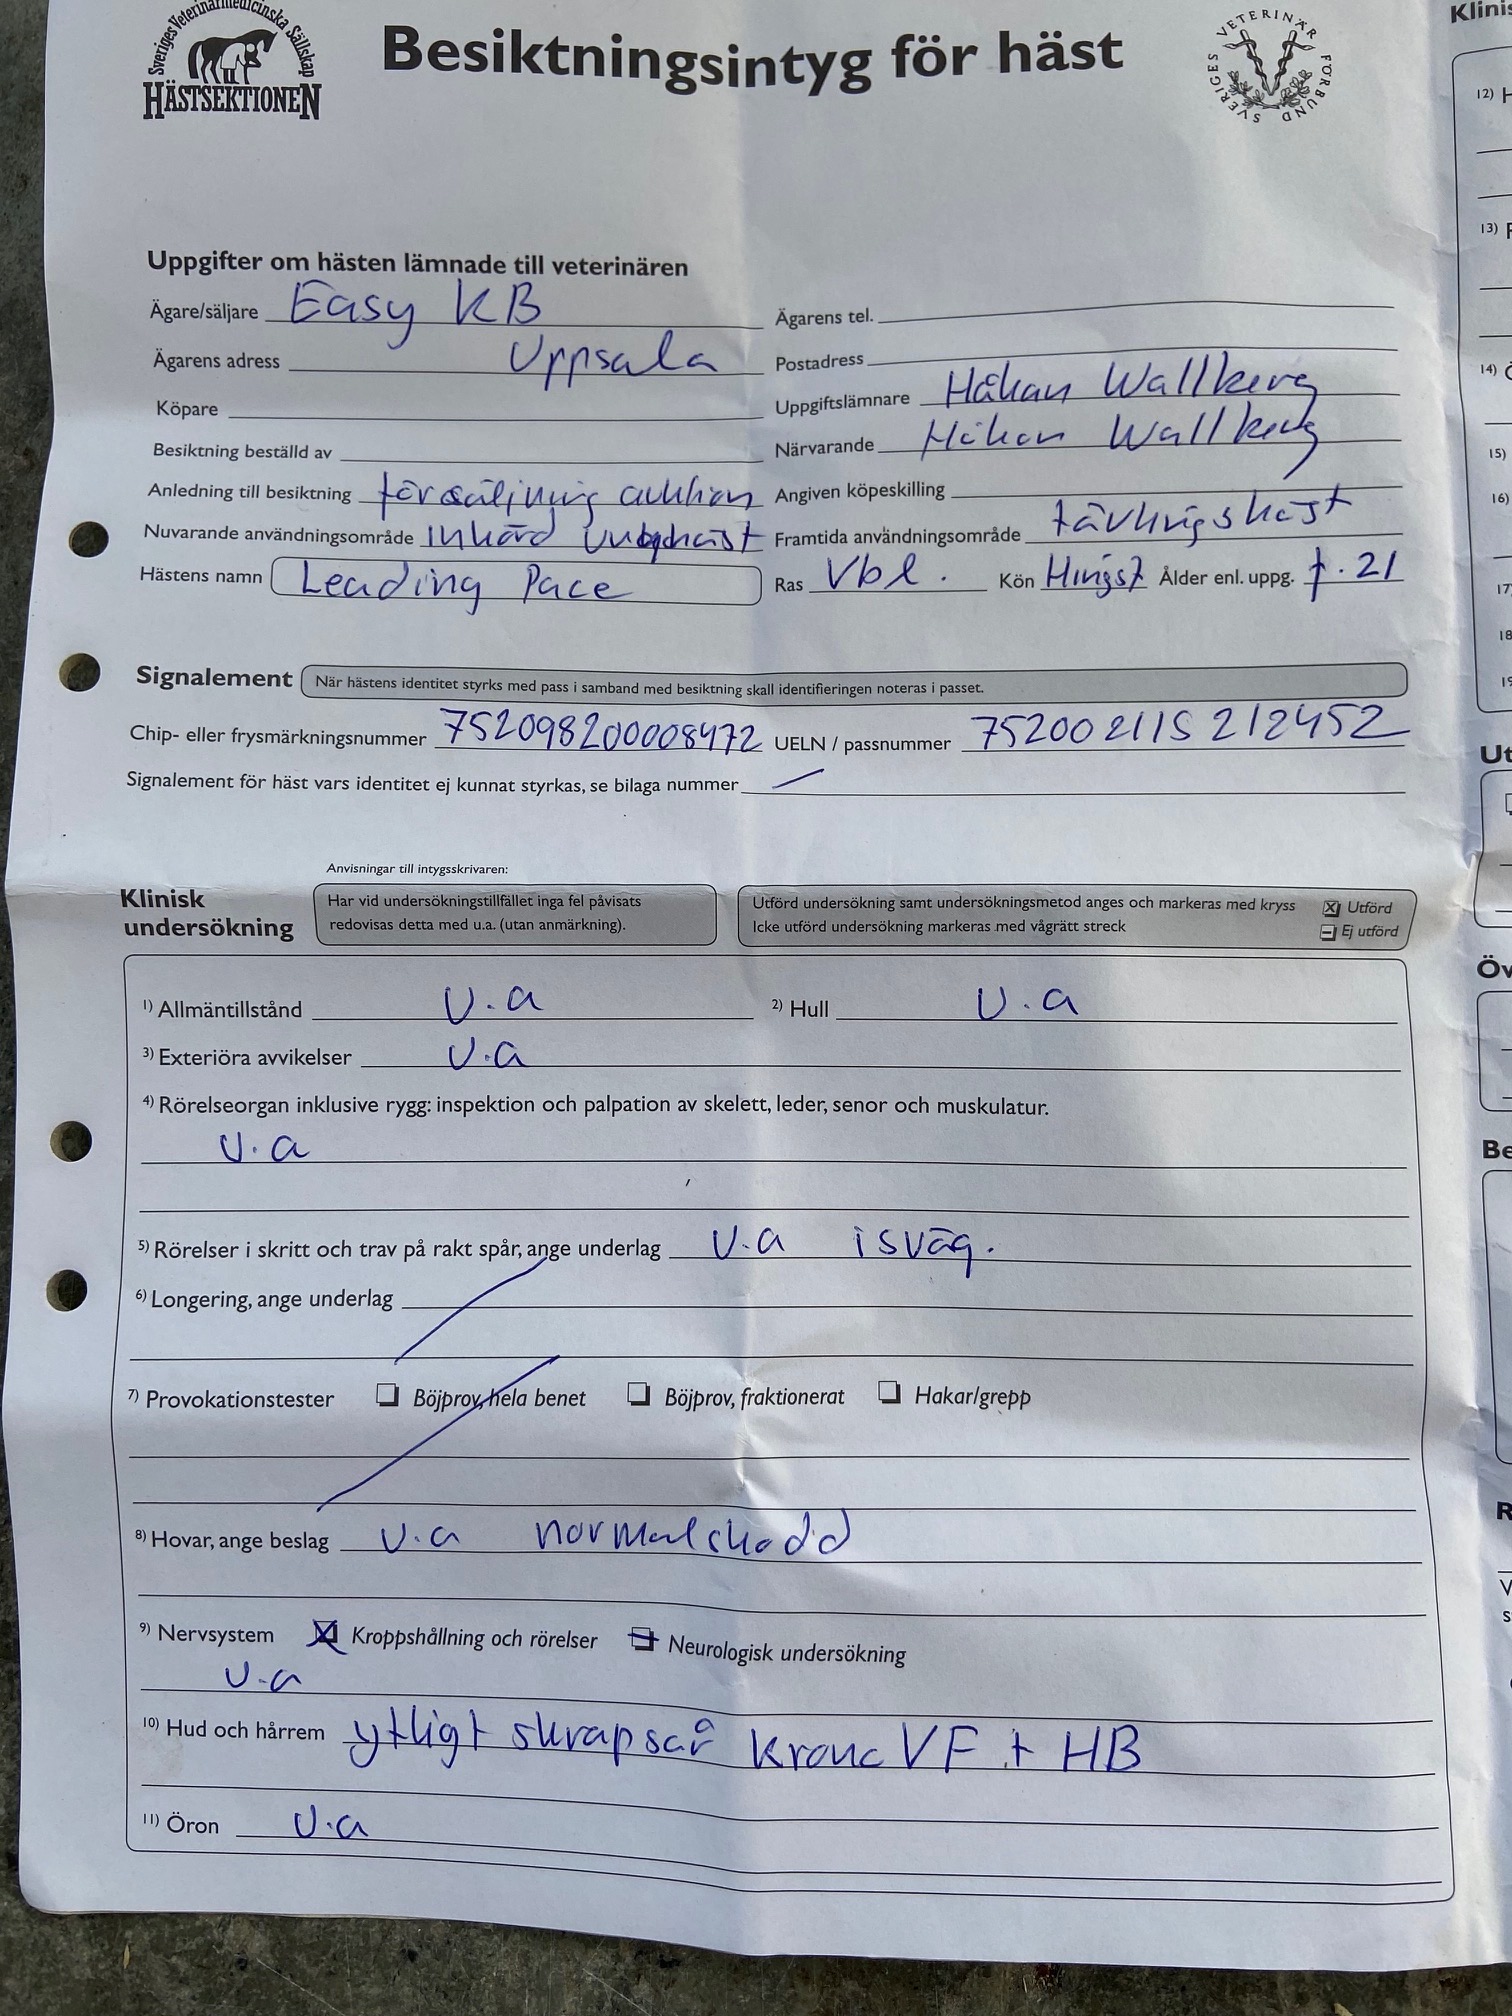 Sveriges Veterinärmedicinska Sällskap
HÄSTSEKTIONEN
Besiktningsintyg för häst
SVERIGES VETERINÄRFÖRBUND
Uppgifter om hästen lämnade till veterinären
Ägare/säljare Easy KB Ägarens tel.
Ägarens adress Uppsala Postadress
Köpare Uppgiftslämnare Håkan Wallberg
Besiktning beställd av Närvarande Håkan Wallberg
Anledning till besiktning försäljning auktion Angiven köpeskilling
Nuvarande användningsområde inkörd unghäst Framtida användningsområde tävlingshäst
Hästens namn Leading Pace Ras Vbl. Kön Hingst Ålder enl. uppg. f.21
Signalement När hästens identitet styrks med pass i samband med besiktning skall identifieringen noteras i passet.
Chip- eller frysmärkningsnummer 752098200008472 UELN / passnummer 752002115212452
Signalement för häst vars identitet ej kunnat styrkas, se bilaga nummer
Anvisningar till intygsskrivaren:
Klinisk undersökning
Har vid undersökningstillfället inga fel påvisats
redovisas detta med u.a. (utan anmärkning).
Utförd undersökning samt undersökningsmetod anges och markeras med kryss Utförd
Icke utförd undersökning markeras med vågrätt streck Ej utförd
1) Allmäntillstånd u.a 2) Hull u.a
3) Exteriöra avvikelser u.a
4) Rörelseorgan inklusive rygg: inspektion och palpation av skelett, leder, senor och muskulatur.
u.a
5) Rörelser i skritt och trav på rakt spår, ange underlag u.a isväg.
6) Longering, ange underlag
7) Provokationstester Böjprov, hela benet Böjprov, fraktionerat Hakar/grepp
8) Hovar, ange beslag u.a normalskodd
9) Nervsystem Kroppshållning och rörelser Neurologisk undersökning
u.a
10) Hud och hårrem ytligt skrapsår krona VF + HB
11) Öron u.a
12)
13)
14)
15)
16)
17)
18
19
Ut
Öv
Be